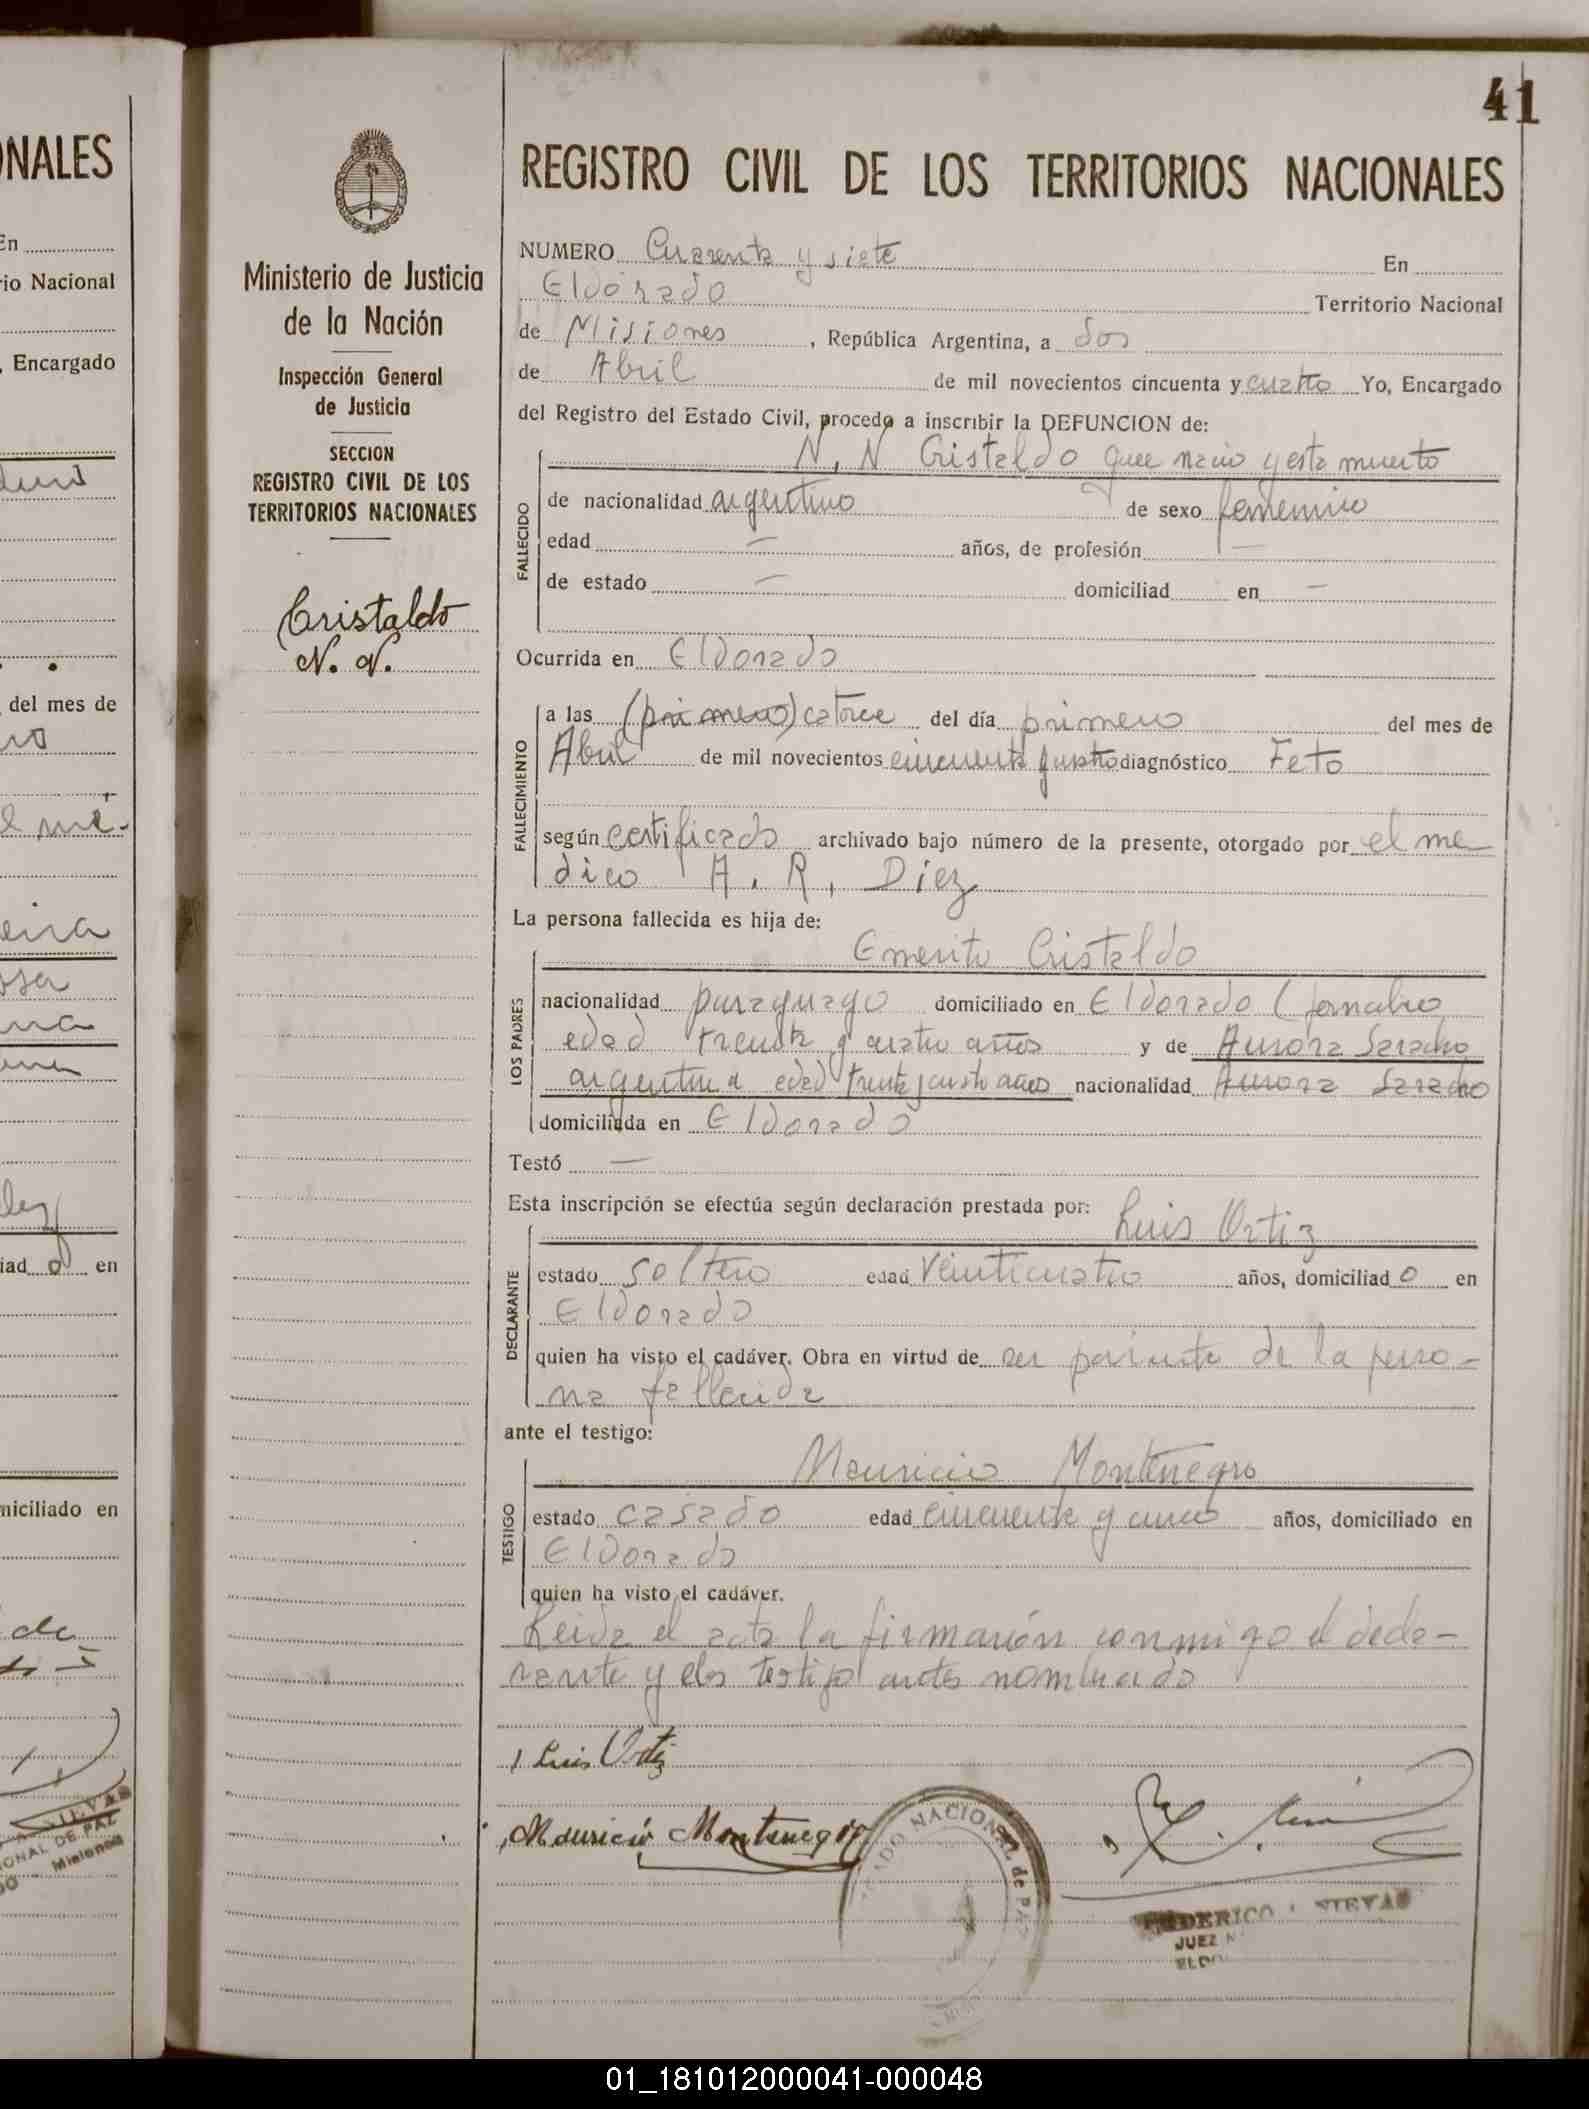 41
REGISTRO CIVIL DE LOS TERRITORIOS NACIONALES
Ministerio de Justicia
de la Nación
Inspección General
de Justicia
SECCION
REGISTRO CIVIL DE LOS
TERRITORIOS NACIONALES
Cristaldo
N. N.
NUMERO Cuarenta y siete En
Eldorado Territorio Nacional
de Misiones, República Argentina, a dos
de Abril de mil novecientos cincuenta y cuatro Yo, Encargado
del Registro del Estado Civil, procedo a inscribir la DEFUNCION de:
N. N Cristaldo que nacio y esta muerto
FALLECIDO
de nacionalidad argentino de sexo femenino
edad — años, de profesión —
de estado — domiciliad en —
Ocurrida en Eldorado
FALLECIMIENTO
a las (primero) catorce del día primero del mes de
Abril de mil novecientos cincuenta y cuatro diagnóstico Feto
según certificado archivado bajo número de la presente, otorgado por el me
dico A. R. Diez
La persona fallecida es hija de:
Emerito Cristaldo
LOS PADRES
nacionalidad paraguayo domiciliado en Eldorado (jornalero
edad treinta y cuatro años y de Aurora Saracho
argentina edad treinta y cuatro años nacionalidad Aurora Saracho
domiciliada en Eldorado
Testó —
Esta inscripción se efectúa según declaración prestada por:
Luis Ortiz
DECLARANTE
estado soltero edad veinticuatro años, domiciliado en
Eldorado
quien ha visto el cadáver. Obra en virtud de ser pariente de la perso-
na fallecida
ante el testigo:
Mauricio Montenegro
TESTIGO
estado casado edad cincuenta y cinco años, domiciliado en
Eldorado
quien ha visto el cadáver.
Leida el acta la firmarón conmigo el decla-
rante y el testigo antes nombrado
Luis Ortiz
Mauricio Montenegro
NACIONAL de PAZ
FEDERICO NIEVAS
JUEZ N
ELDO
NALES
En
rio Nacional
, Encargado
del mes de
el mé-
iad o en
niciliado en
de
DE PAZ
IONAL
Misiones
01_181012000041-000048